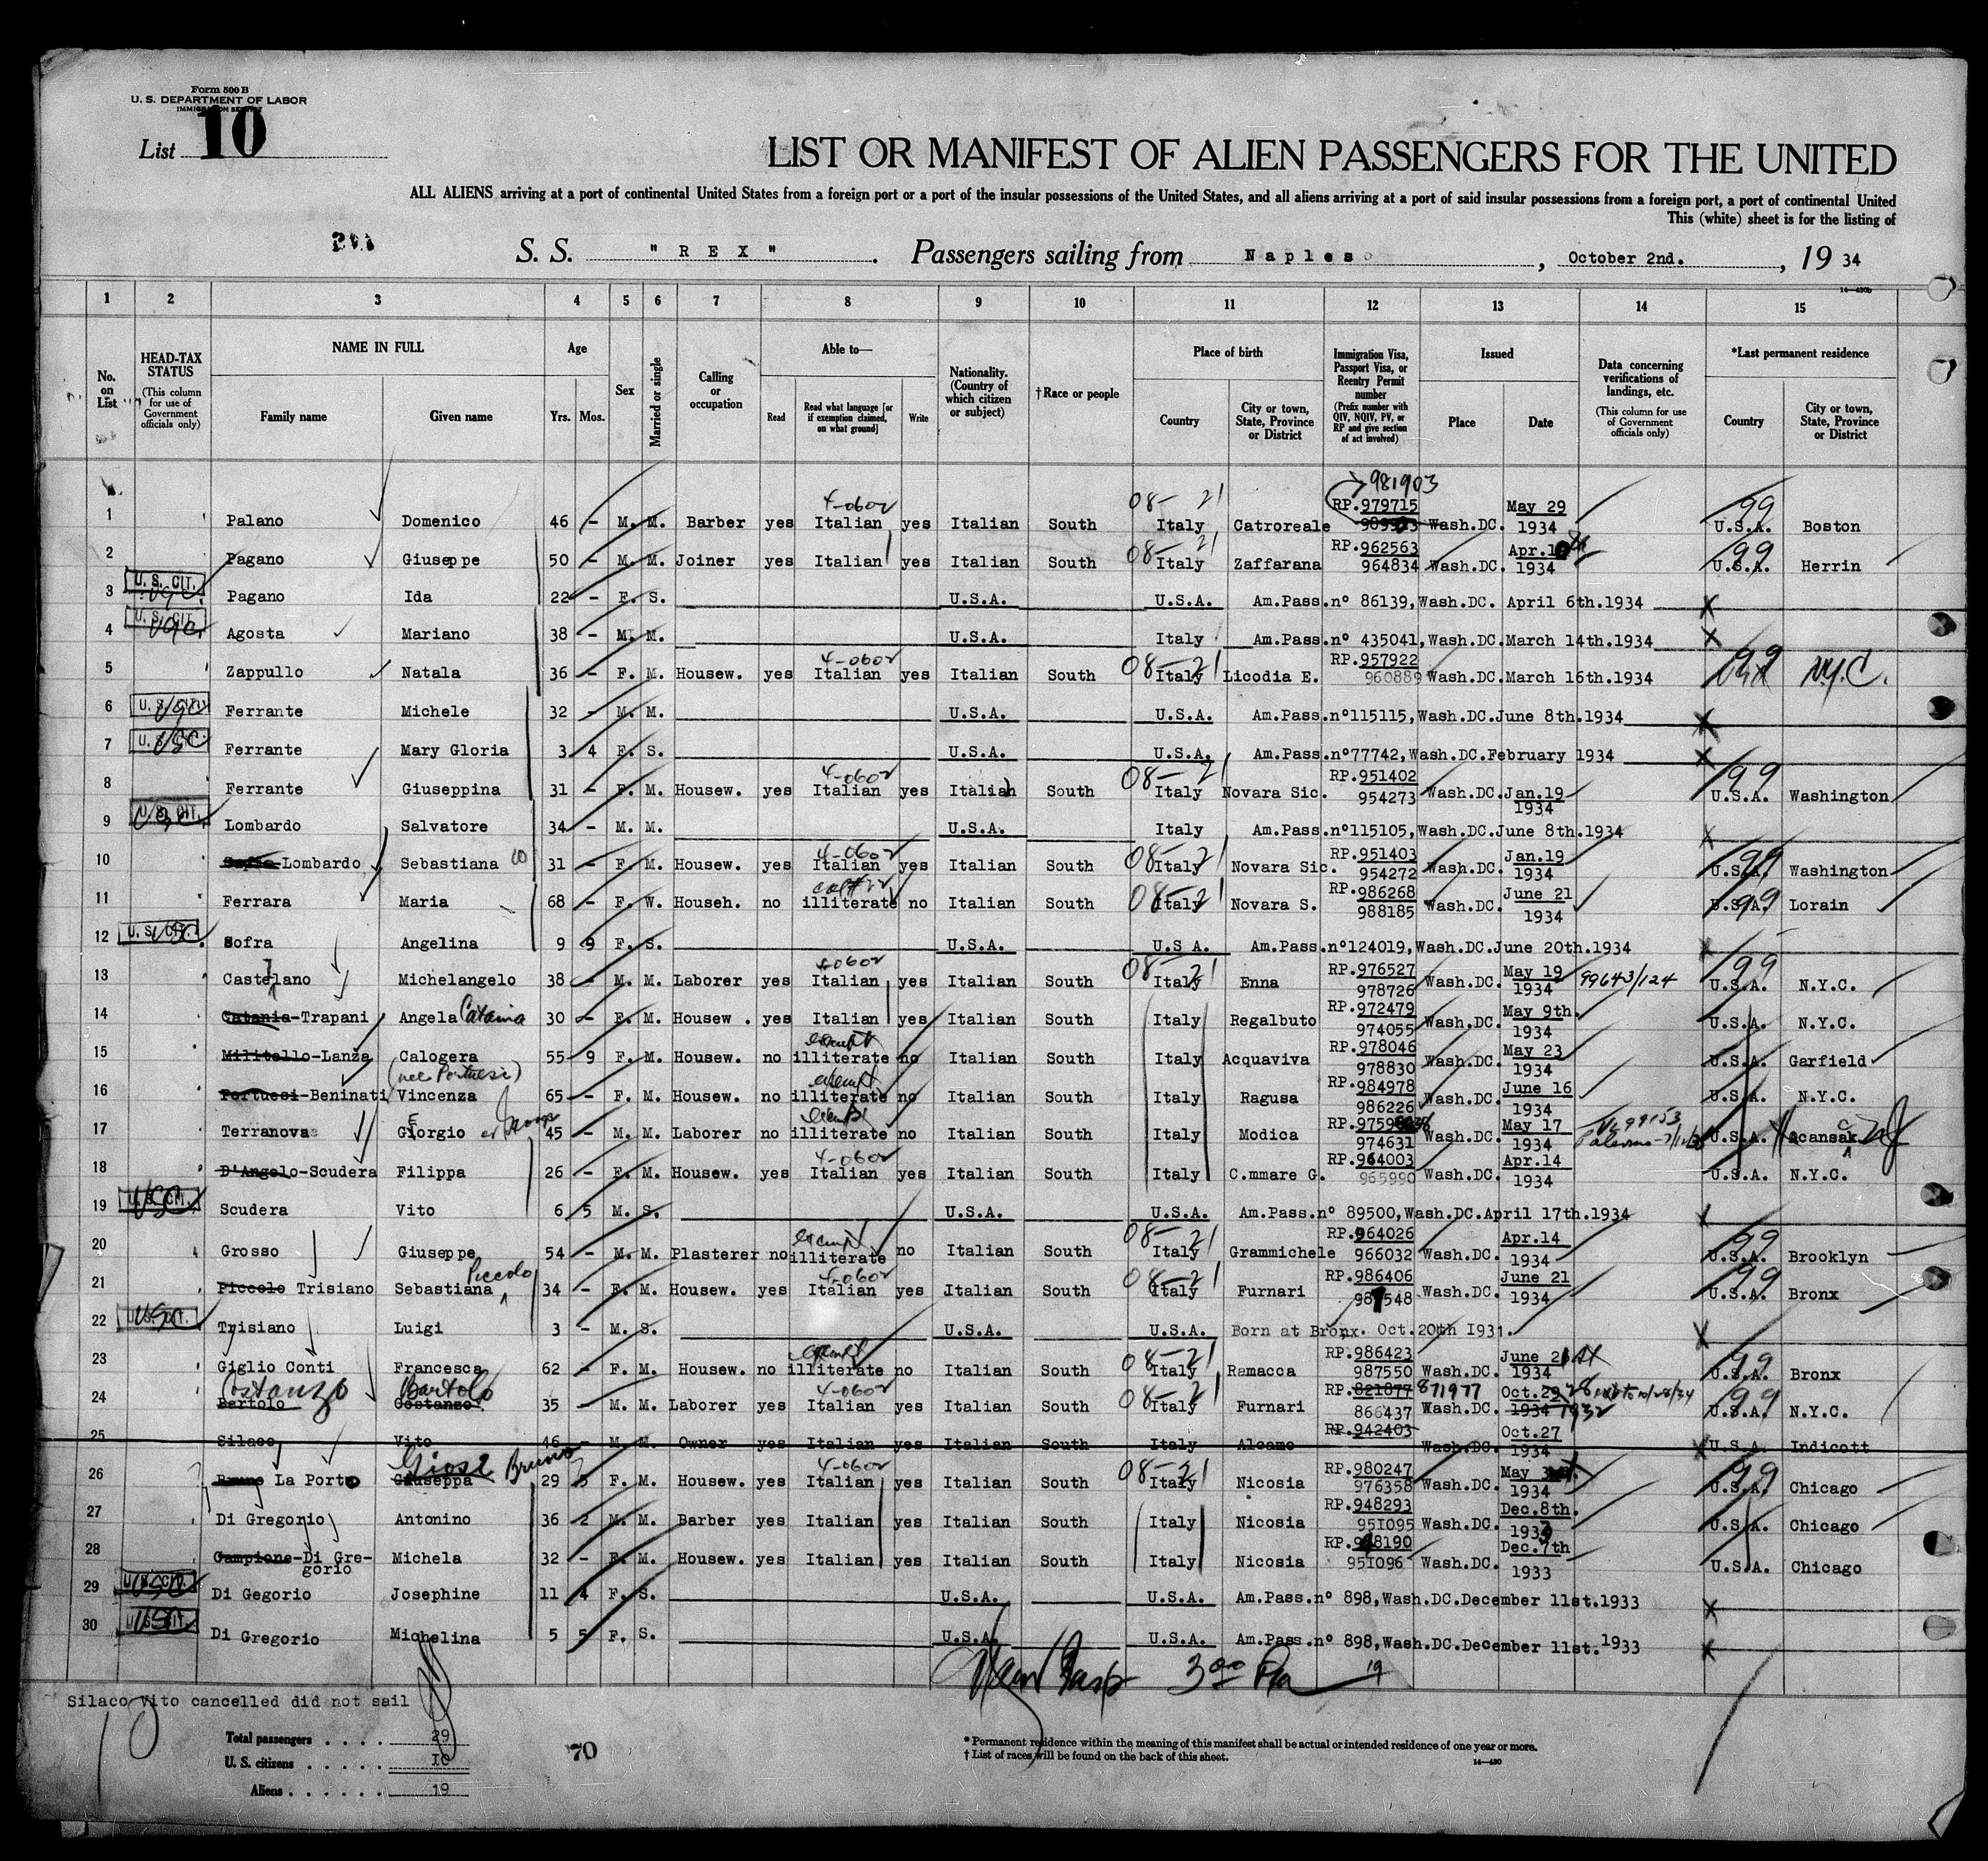 Form 500 B
U. S. DEPARTMENT OF LABOR
IMMIGRATION SERVICE
List 10
LIST OR MANIFEST OF ALIEN PASSENGERS FOR THE UNITED
ALL ALIENS arriving at a port of continental United States from a foreign port or a port of the insular possessions of the United States, and all aliens arriving at a port of said insular possessions from a foreign port, a port of continental United
This (white) sheet is for the listing of
S. S. " R E X " . Passengers sailing from Naples , October 2nd. , 19 34
14—430b
1 2 3 4 5 6 7 8 9 10 11 12 13 14 15
No. on List
HEAD-TAX STATUS (This column for use of Government officials only)
NAME IN FULL Family name Given name
Age Yrs. Mos.
Sex
Married or single
Calling or occupation
Able to— Read Read what language [or if exemption claimed, on what ground] Write
Nationality. (Country of which citizen or subject)
†Race or people
Place of birth Country City or town, State, Province or District
Immigration Visa, Passport Visa, or Reentry Permit number (Prefix number with QIV, NQIV, PV, or RP and give section of act involved)
Issued Place Date
Data concerning verifications of landings, etc. (This column for use of Government officials only)
*Last permanent residence Country City or town, State, Province or District
981903
1 Palano Domenico 46 - M. M. Barber yes 4-0602 Italian yes Italian South 08-21 Italy Catroreale RP.979715 Wash.DC. May 29 1934 99 U.S.A. Boston
2 Pagano Giuseppe 50 - M. M. Joiner yes Italian yes Italian South 08-21 Italy Zaffarana RP.962563 964834 Wash.DC. Apr. 1934 99 U.S.A. Herrin
3 U. S. CIT. Pagano Ida 22 - F. S. U.S.A. U.S.A. Am.Pass.nº 86139,Wash.DC. April 6th.1934 X
4 U. S. CIT. Agosta Mariano 38 - M. M. U.S.A. Italy Am.Pass.nº 435041,Wash.DC.March 14th.1934 X
5 Zappullo Natala 36 - F. M. Housew. yes 4-0602 Italian yes Italian South 08-21 Italy Licodia E. RP.957922 960889 Wash.DC.March 16th.1934 99 N.Y.C.
6 U. S. CIT. USC Ferrante Michele 32 - M. M. U.S.A. U.S.A. Am.Pass.nº115115,Wash.DC.June 8th.1934 X
7 U. S. CIT. USC Ferrante Mary Gloria 3 4 F. S. U.S.A. U.S.A. Am.Pass.nº77742,Wash.DC.February 1934 X
8 Ferrante Giuseppina 31 - F. M. Housew. yes 4-0602 Italian yes Italian South 08-21 Italy Novara Sic. RP.951402 954273 Wash.DC. Jan.19 1934 99 U.S.A. Washington
9 U. S. CIT. USC Lombardo Salvatore 34 - M. M. U.S.A. Italy Am.Pass.nº115105,Wash.DC.June 8th.1934 X
10 Sofra-Lombardo Sebastiana 31 - F. M. Housew. yes 4-0602 Italian yes Italian South 08-21 Italy Novara Sic. RP.951403 954272 Wash.DC. Jan.19 1934 99 U.S.A. Washington
11 Ferrara Maria 68 - F. W. Househ. no illiterate no Italian South 08-21 Italy Novara S. RP.986268 988185 Wash.DC. June 21 1934 99 U.S.A. Lorain
12 U. S. CIT. USC Sofra Angelina 9 9 F. S. U.S.A. U.S A. Am.Pass.nº124019,Wash.DC.June 20th.1934 X
13 Castelano Michelangelo 38 - M. M. Laborer yes 4-0602 Italian yes Italian South 08-21 Italy Enna RP.976527 978726 Wash.DC. May 19 1934 99643/124 99 U.S.A. N.Y.C.
14 Catania-Trapani Angela Catania 30 - F. M. Housew . yes Italian yes Italian South Italy Regalbuto RP.972479 974055 Wash.DC. May 9th. 1934 U.S.A. N.Y.C.
15 Militello-Lanza Calogera 55 9 F. M. Housew. no exempt illiterate no Italian South Italy Acquaviva RP.978046 978830 Wash.DC. May 23 1934 U.S.A. Garfield
16 Portuesi-Beninati (nee Portuesi) Vincenza 65 - F. M. Housew. no exempt illiterate no Italian South Italy Ragusa RP.984978 986226 Wash.DC. June 16 1934 U.S.A. N.Y.C.
17 Terranova Giorgio 45 - M. M. Laborer no exempt illiterate no Italian South Italy Modica 974631 Wash.DC. May 17 1934 U.S.A.
18 D'Angelo-Scudera Filippa 26 - F. M. Housew. yes 4-0602 Italian yes Italian South Italy C.mmare G. RP.964003 965990 Wash.DC. Apr.14 1934 U.S.A. N.Y.C.
19 U. S. CIT. USC Scudera Vito 6 5 M. S. U.S.A. U.S.A. Am.Pass.nº 89500,Wash.DC.April 17th.1934 X
20 Grosso Giuseppe 54 - M. M. Plasterer no exempt illiterate no Italian South 08-21 Italy Grammichele RP.964026 966032 Wash.DC. Apr.14 1934 99 U.S.A. Brooklyn
21 Piccolo Trisiano Sebastiana Piccolo 34 - F. M. Housew. yes 4-0602 Italian yes Italian South 08-21 Italy Furnari RP.986406 987548 Wash.DC. June 21 1934 99 U.S.A. Bronx
22 U. S. CIT. USC Trisiano Luigi 3 - M. S. U.S.A. U.S.A. Born at Bronx. Oct.20th I931. X
23 Giglio Conti Francesca 62 - F. M. Housew. no exempt illiterate no Italian South 08-21 Italy Ramacca RP.986423 987550 Wash.DC. June 1934 99 U.S.A. Bronx
24 Costanzo Bartolo Bertolo Costanzo 35 - M. M. Laborer yes 4-0602 Italian yes Italian South 08-21 Italy Furnari RP.821877 871977 866437 Wash.DC. Oct.29 28 1934 1932 99 U.S.A. N.Y.C.
25 Silaco Vito 46 - M. M. Owner yes Italian yes Italian South Italy Alcamo RP.942403 Wash.DC. Oct.27 1934 X U.S.A. Indicott
26 Bruno La Porto Giuseppa Giose Bruno 29 5 F. M. Housew. yes 4-0602 Italian yes Italian South 08-21 Italy Nicosia RP.980247 976358 Wash.DC. May 1934 99 U.S.A. Chicago
27 Di Gregorio Antonino 36 2 M. M. Barber yes Italian yes Italian South Italy Nicosia RP.948293 951095 Wash.DC. Dec.8th. 1933 U.S.A. Chicago
28 Campione-Di Gregorio Michela 32 - F. M. Housew. yes Italian yes Italian South Italy Nicosia RP.948190 951096 Wash.DC. Dec.7th 1933 U.S.A. Chicago
29 U. S. CIT. USC Di Gegorio Josephine 11 4 F. S. U.S.A. U.S.A. Am.Pass.nº 898,Wash.DC.December 11st.1933 X
30 U. S. CIT. USC Di Gregorio Michelina 5 5 F. S. U.S.A. U.S.A. Am.Pass.nº 898,Wash.DC.December 11st.1933 X
3 00 Pm 19
Silaco Vito cancelled did not sail
Total passengers . . . . 29
U. S. citizens . . . . . 10
Aliens . . . . . . 19
70
* Permanent residence within the meaning of this manifest shall be actual or intended residence of one year or more.
† List of races will be found on the back of this sheet.
14—430